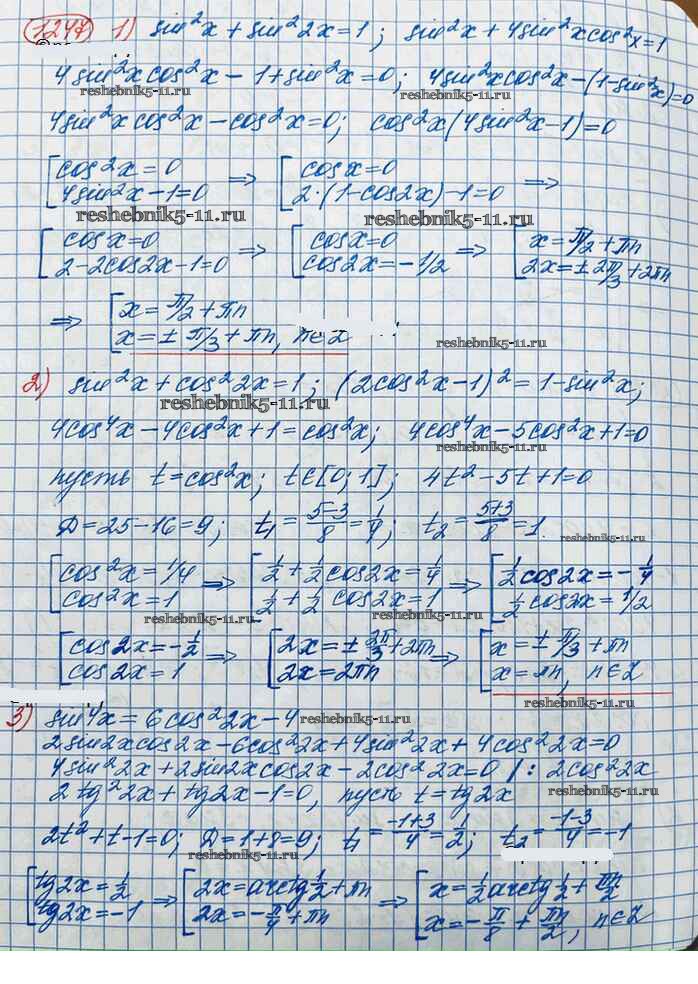 1247 1) sin²x + sin²2x = 1; sin²x + 4sin²xcos²x = 1
4sin²xcos²x - 1 + sin²x = 0; 4sin²xcos²x - (1 - sin²x) = 0
reshebnik5-11.ru reshebnik5-11.ru
4sin²xcos²x - cos²x = 0; cos²x(4sin²x - 1) = 0
[cos²x = 0 ⇒ [cosx = 0 ⇒
4sin²x - 1 = 0 2·(1 - cos2x) - 1 = 0
reshebnik5-11.ru reshebnik5-11.ru
[cosx = 0 ⇒ [cosx = 0 ⇒ [x = π/2 + πn
2 - 2cos2x - 1 = 0 cos2x = -1/2 2x = ± 2π/3 + 2πn
⇒ [x = π/2 + πn
x = ± π/3 + πn, n∈Z
reshebnik5-11.ru
2) sin²x + cos²2x = 1; (2cos²x - 1)² = 1 - sin²x;
reshebnik5-11.ru
4cos⁴x - 4cos²x + 1 = cos²x; 4cos⁴x - 5cos²x + 1 = 0
reshebnik5-11.ru
пусть t = cos²x; t∈[0; 1]; 4t² - 5t + 1 = 0
D = 25 - 16 = 9; t₁ = (5-3)/8 = 1/4; t₂ = (5+3)/8 = 1.
reshebnik5-11.ru
[cos²x = 1/4 ⇒ [1/2 + 1/2 cos2x = 1/4 ⇒ [1/2 cos2x = -1/4
cos²x = 1 1/2 + 1/2 cos2x = 1 1/2 cos2x = 1/2
reshebnik5-11.ru reshebnik5-11.ru
[cos2x = -1/2 ⇒ [2x = ± 2π/3 + 2πn ⇒ [x = ± π/3 + πn
cos2x = 1 2x = 2πn x = πn, n∈Z
reshebnik5-11.ru reshebnik5-11.ru
3) sin4x = 6cos²2x - 4
reshebnik5-11.ru
2sin2xcos2x - 6cos²2x + 4sin²2x + 4cos²2x = 0
4sin²2x + 2sin2xcos2x - 2cos²2x = 0 /: 2cos²2x
2tg²2x + tg2x - 1 = 0, пусть t = tg2x
reshebnik5-11.ru
2t² + t - 1 = 0; D = 1 + 8 = 9; t₁ = (-1+3)/4 = 1/2; t₂ = (-1-3)/4 = -1
reshebnik5-11.ru
[tg2x = 1/2 ⇒ [2x = arctg 1/2 + πn ⇒ [x = 1/2 arctg 1/2 + πn/2
tg2x = -1 2x = -π/4 + πn x = -π/8 + πn/2, n∈Z
reshebnik5-11.ru